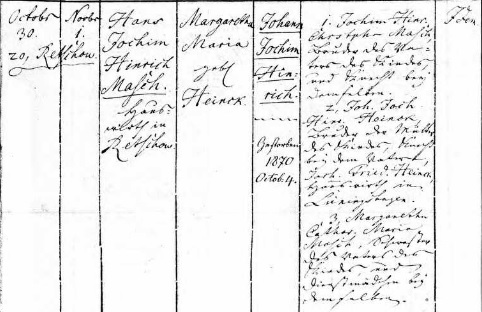 Octobr
30.
zu Retschow.
Novbr
1.
Hans
Jochim
Hinrich
Masch.
Haus-
wirth in
Retschow.
Margaretha
Maria
gebl
Heinck.
Johann
Jochim
Hin-
rich.
Gestorben
1870
Octob. 4.
1. Jochim Hinr.
Christopher Masch,
Bruder des Va-
ters des Kindes,
und Knecht bey
demselben.
2. Joh. Joch.
Hinr. Heinck,
Bruder der Mutter
des Kindes, Knecht
bei dem Vater,
Joch. Fried. Heinck,
Hauswirth in
3, Margaretha
Cathar. Maria
Masch, Schwester
des Vaters des
Kindes und
Dienstmädchen bey
demselben.